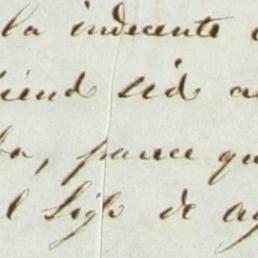 la indecente
siend sid a
ba, parece qu
l siglo de ag